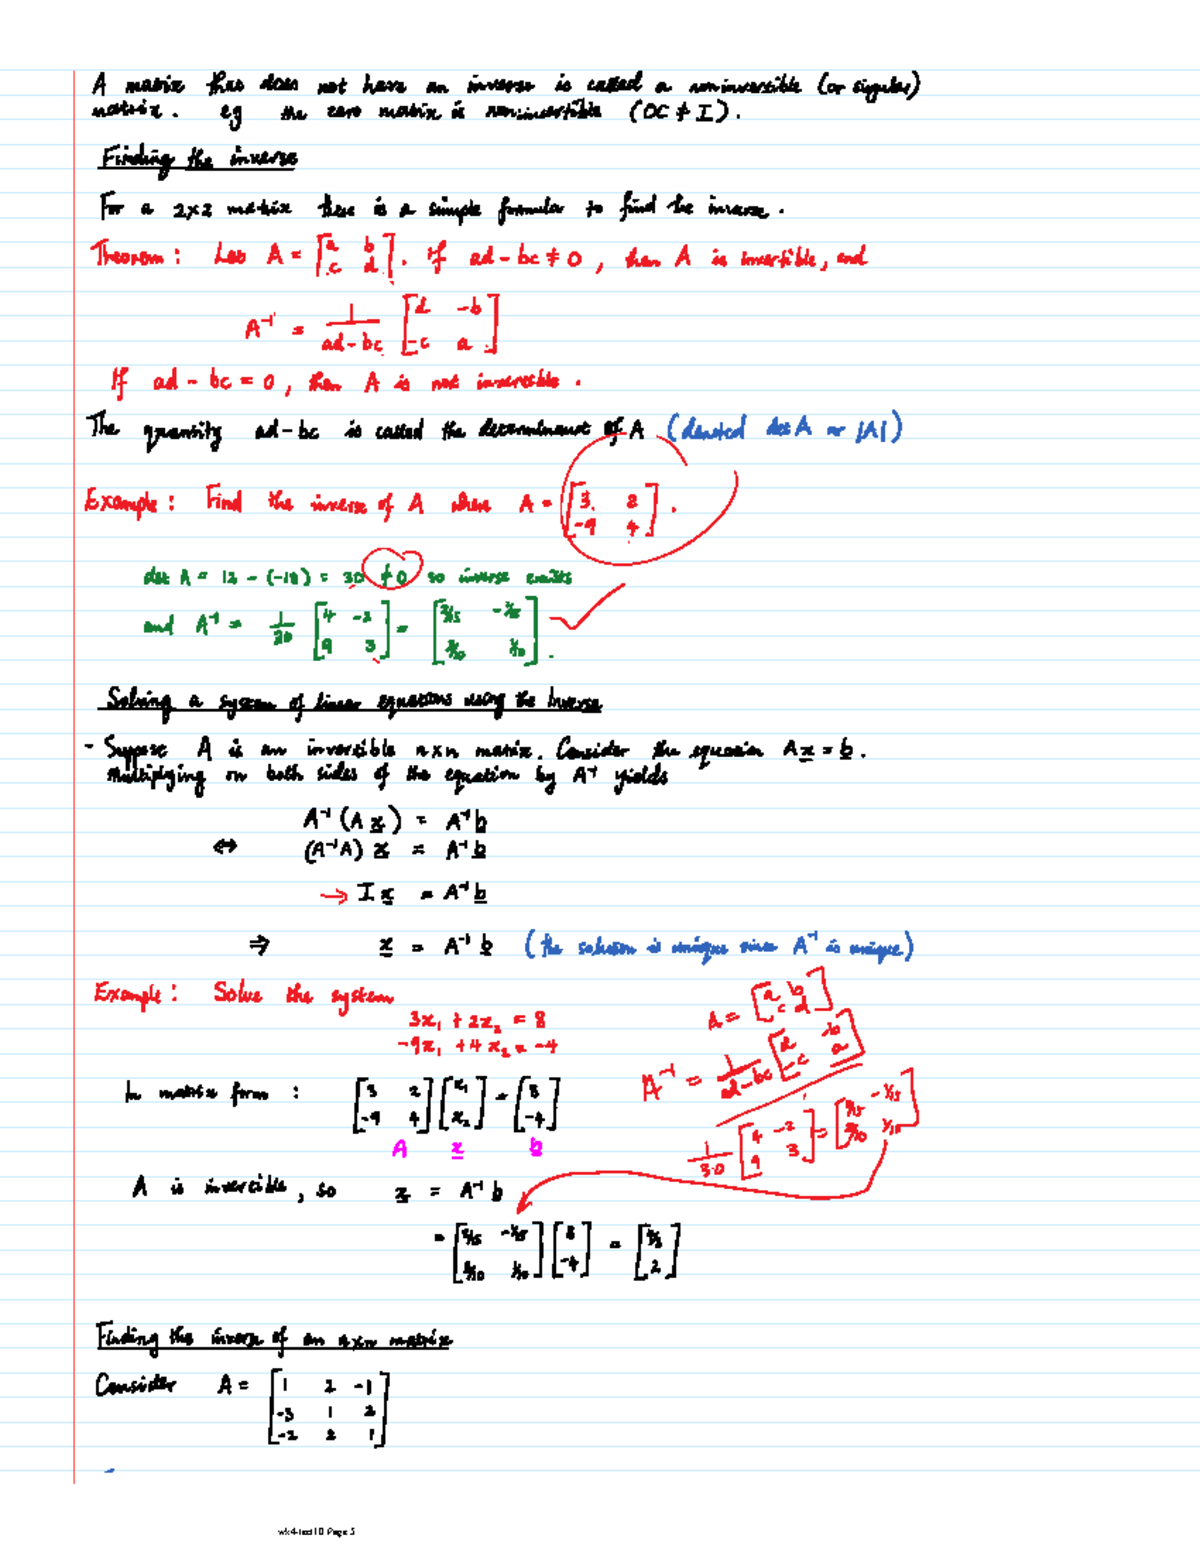 A matrix that does not have an inverse is called a noninvertible (or singular)
matrix. eg the zero matrix is noninvertible (OC ≠ I).
Finding the inverse
For a 2x2 matrix there is a simple formular to find the inverse.
Theorem: Let A = [a b; c d]. If ad-bc ≠ 0, then A is invertible, and
A⁻¹ = 1/(ad-bc) [d -b; -c a]
If ad-bc = 0, then A is not invertible.
The quantity ad-bc is called the determinant of A (denoted det A or |A|)
Example: Find the inverse of A where A = [3 2; -9 4].
det A = 12 - (-18) = 30 ≠ 0 so inverse exists
and A⁻¹ = 1/30 [4 -2; 9 3] = [2/15 -1/15; 3/10 1/10].
Solving a system of linear equations using the Inverse
- Suppose A is an invertible nxn matrix. Consider the equation Ax = b.
Multiplying on both sides of the equation by A⁻¹ yields
A⁻¹(Ax) = A⁻¹b
⇔ (A⁻¹A)x = A⁻¹b
→ Ix = A⁻¹b
⇒ x = A⁻¹b (the solution is unique since A⁻¹ is unique)
Example: Solve the system
3x₁ + 2x₂ = 8
-9x₁ + 4x₂ = -4
A = [a b; c d]
A⁻¹ = 1/(ad-bc) [d -b; -c a]
1/30 [4 -2; 9 3] = [2/15 -1/15; 3/10 1/10]
In matrix form: [3 2; -9 4] [x₁; x₂] = [8; -4]
A x b
A is invertible, so x = A⁻¹b
= [2/15 -1/15; 3/10 1/10] [8; -4] = [4/3; 2]
Finding the inverse of an nxn matrix
Consider A = [1 2 -1; -3 1 2; -2 2 1]
Page 5